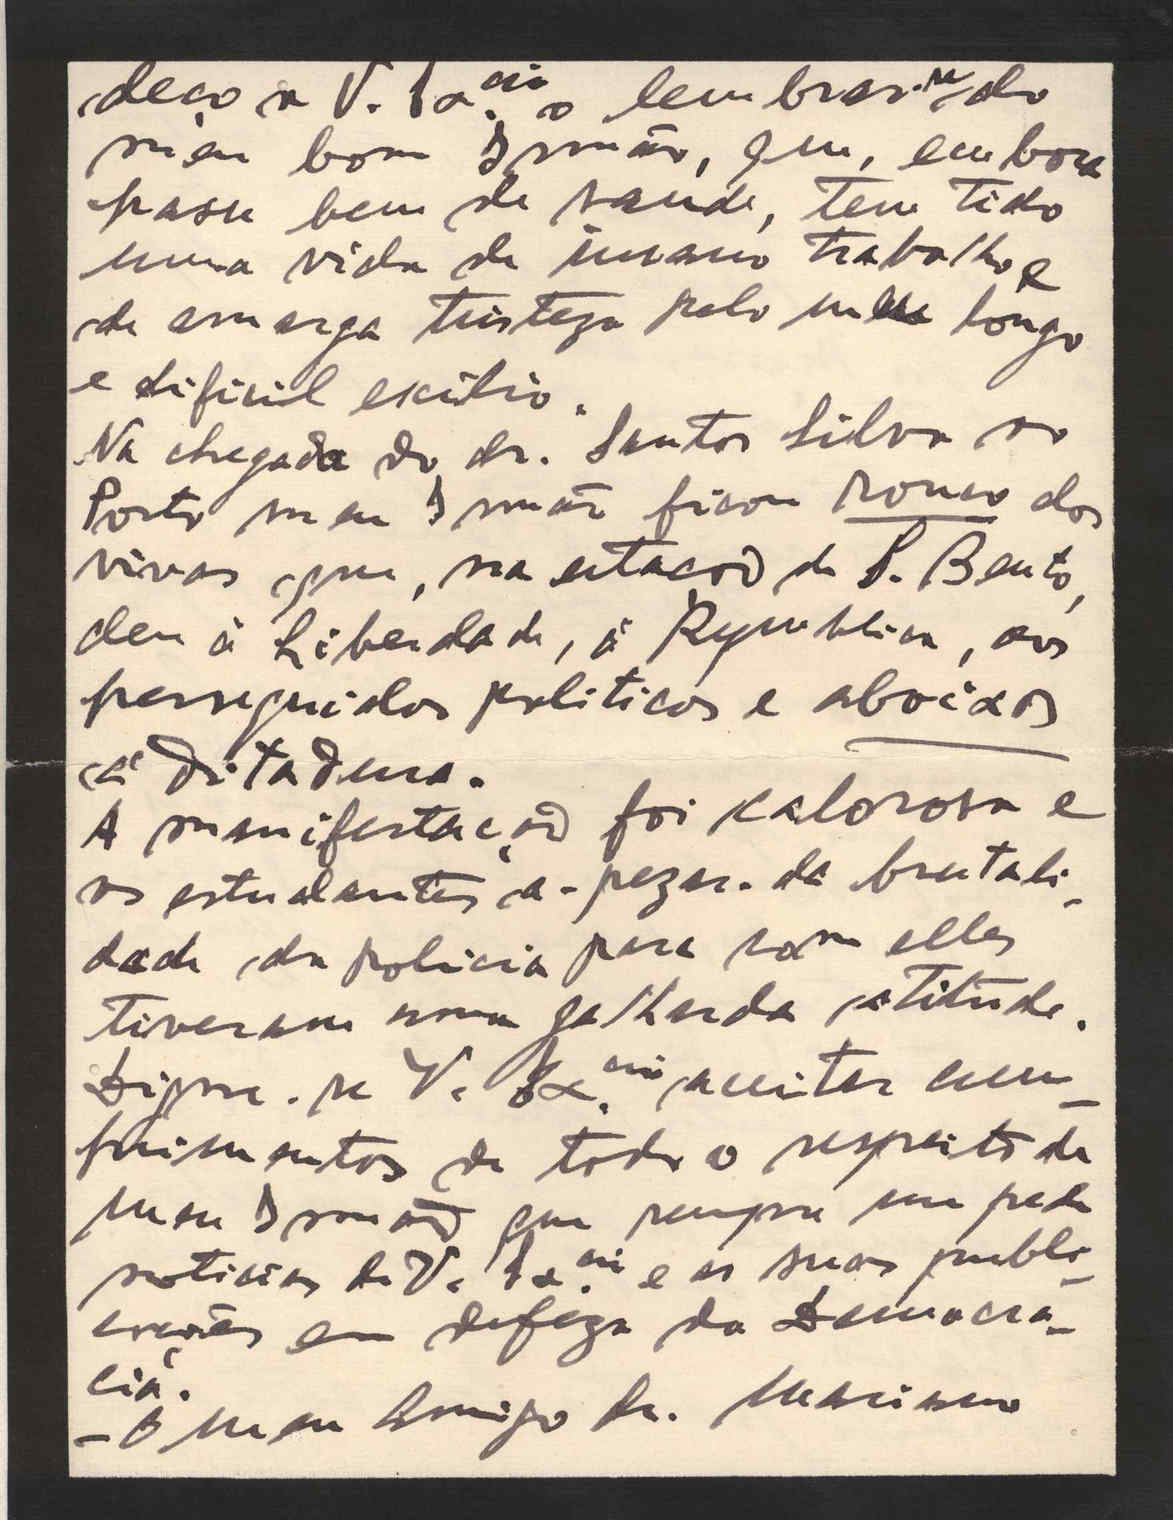 deço a V. Ex.cia o lembrar-se do
meu bom Irmão, que, embora
passe bem de saude, tem tido
uma vida de insano trabalho e
de amarga tristeza pelo meu longo
e dificil exilio.
Na chegada do dr. Santos Silva ao
Porto meu Irmão ficou rouco dos
vivas que, na estação de S. Bento,
deu á Liberdade, á Republica, aos
perseguidos politicos e abaixos
á Ditadura.
A manifestação foi calorosa e
os estudantes a-pezar-da brutali-
dade da policia para com elles
tiveram uma galharda atitude.
Digne-se V. Ex.cia aceitar cum-
primentos de todo o respeito de
meu Irmão que sempre me pede
noticias de V. Ex.cia e as suas publi-
cações em defeza da Democra-
cia.
- O meu Amigo Dr. Marianno